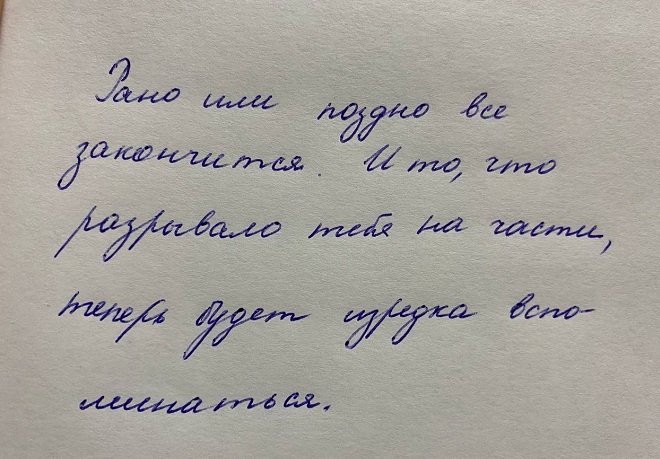 Рано или поздно все
закончится. И то, что
разрывало тебя на части,
теперь будет изредка вспо-
минаться.